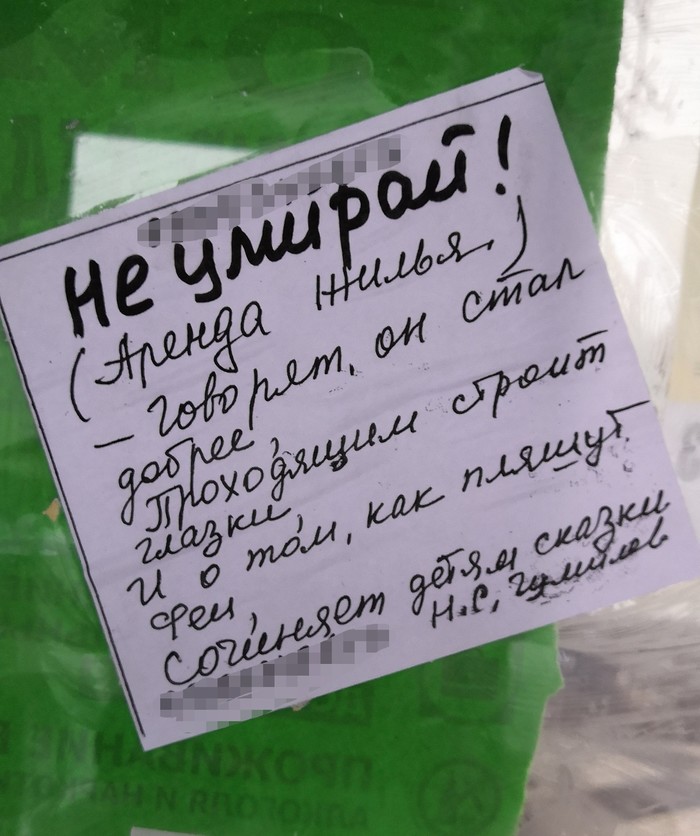 Не умирай!
(Аренда жилья.)
– говорят, он стал
добрее,
Проходящим строит
глазки,
И о том, как пляшут
феи,
Сочиняет детям сказки
Н.С. Гумилев
ПРОЖИВАНИЕ
АЛКОГОЛЯ И НАРКОТИ